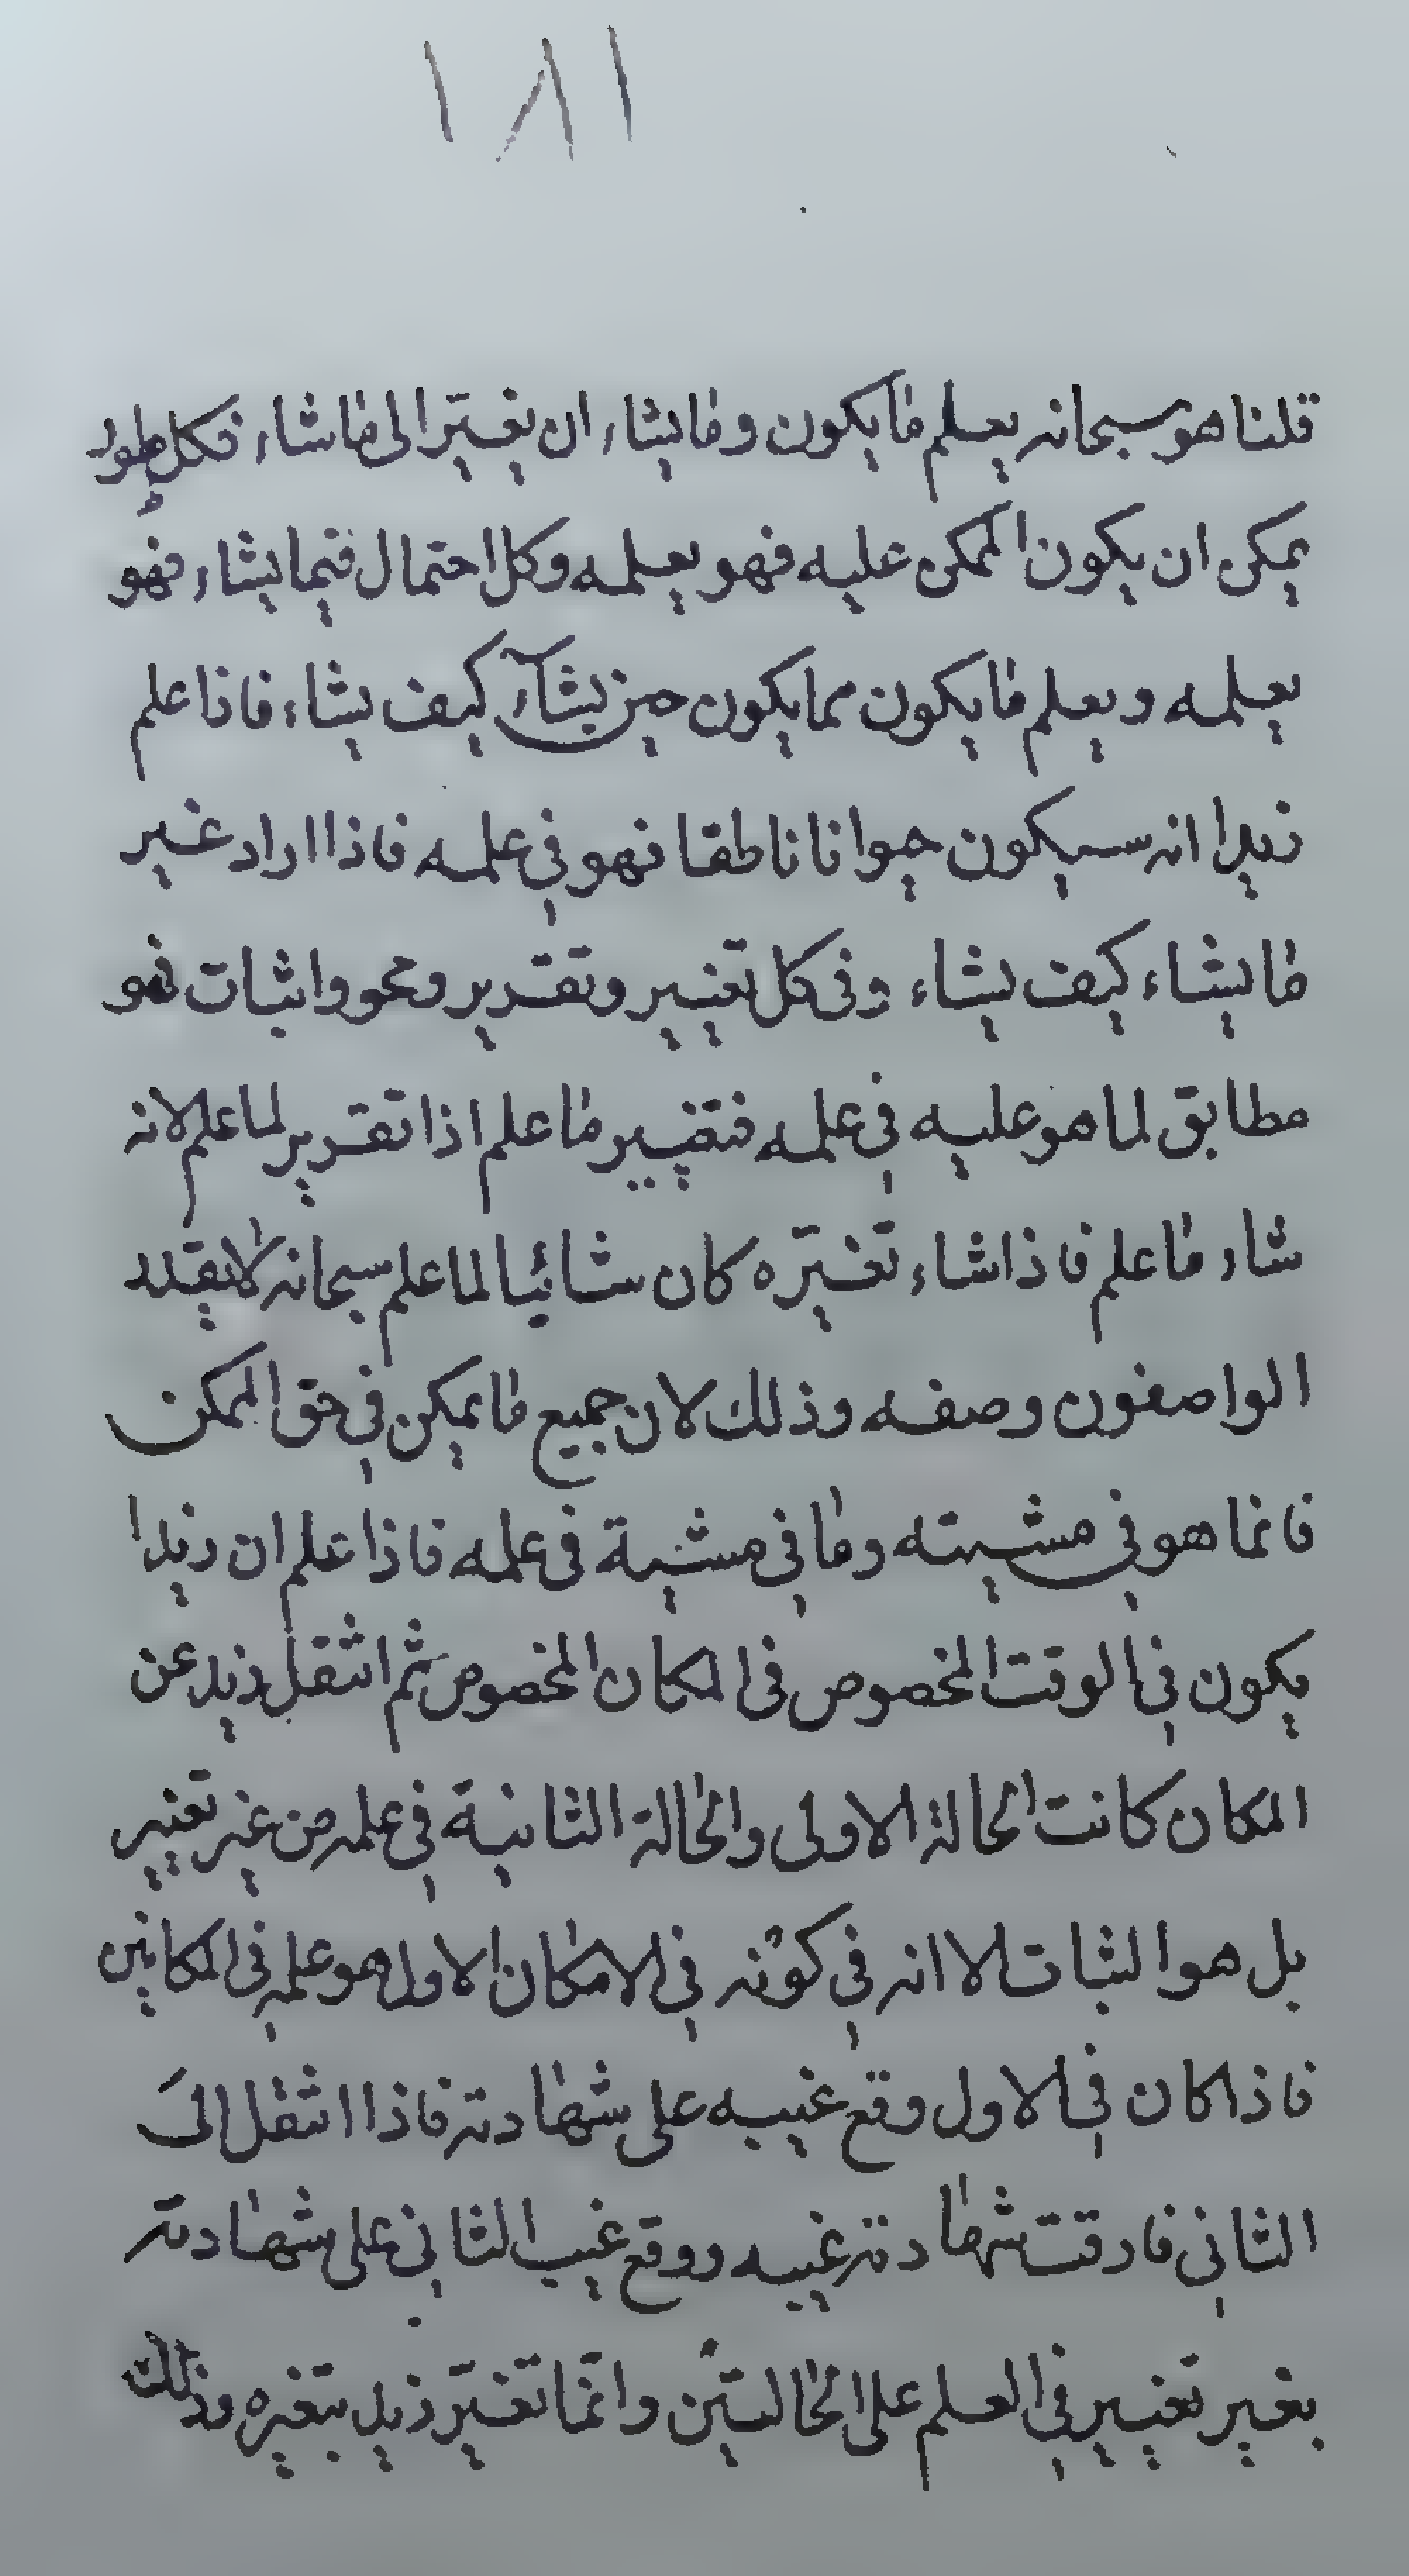 ١٨١
قلنا هو سبحانه يعلم ما يكون وما يشاء ان يغيّر الى ما شاء فكل طور
يمكن ان يكون الممكن عليه فهو يعلمه وكل احتمال فيما يشاء فهو
يعلمه ويعلم ما يكون مما يكون حين يشآء كيف يشاء فاذا علم
زيدا انه سيكون حيوانا ناطقا فهو في علمه فاذا اراد غير
ما يشاء كيف يشاء وفى كل تغيير وتقدير ومحو واثبات فهو
مطابق لما هو عليه في علمه فتغيير ما علم اذا تقرير لما علم لانه
شاء ما علم فاذا شاء تغيّره كان شائيا لما علم سبحانه لا يقدر
الواصفون وصفه وذلك لان جميع ما يمكن في حق الممكن
فانما هو في مشيته وما في مشية فى علمه فاذا علم ان زيدا
يكون في الوقت المخصوص فى المكان المخصوص ثم انتقل زيد عن
المكان كانت الحالة الاولى والحالة الثانية في علمه من غير تغيير
بل هو الثبات لا انه في كونه في الامكان الاول هو علمه في المكانين
فاذا كان في الاول وقع غيبه على شهادته فاذا انتقل الى
الثاني فارقت شهادته غيبه ووقع غيب الثاني على شهادته
بغير تغيير في العلم على الحالتين وانّما تغيّر زيد بتغيره وذلك